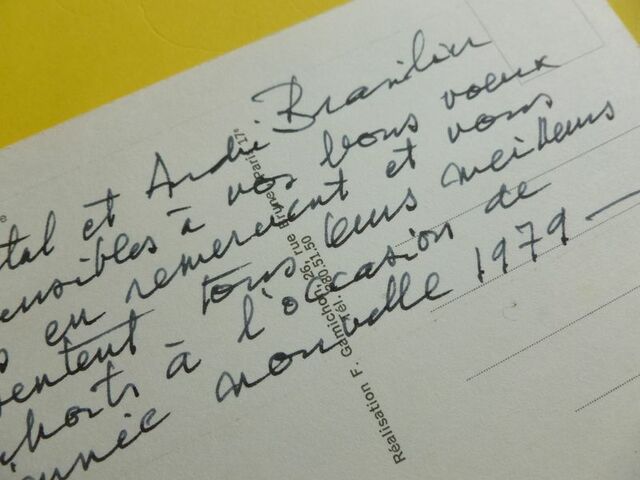 tal et André Brasilier
sensibles à vos bons voeux
en remerciant et vous
sentent tous leurs meilleurs
à l'occasion de
année nouvelle 1979 —
Réalisation F. Garnichon, 26, rue Brunel, Paris 17e
Tél. 380.51.50